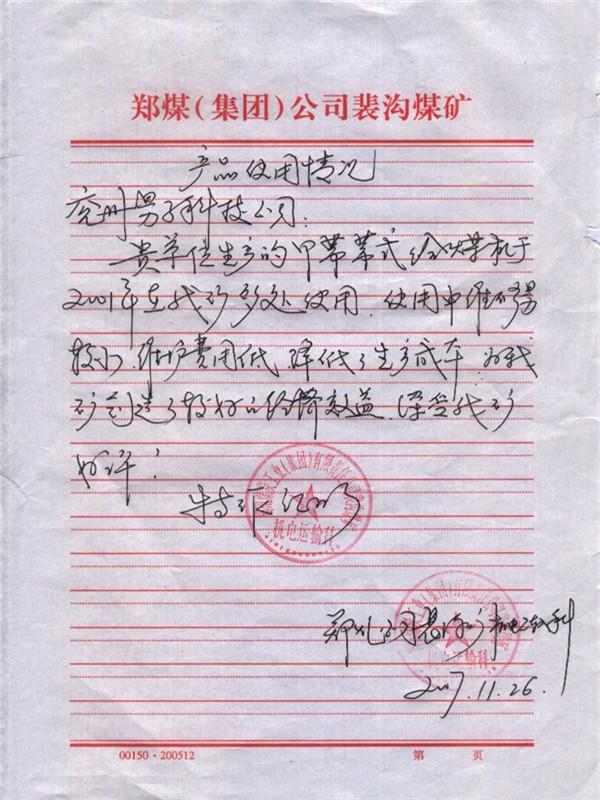 郑煤(集团)公司裴沟煤矿
产品使用情况
兖州男子科技公司:
贵单位生产的甲带带式给煤机于
2001年在我矿多处使用,使用中维修量
较小,维护费用低,降低了生产成本,为我
矿创造了较好的经济效益,深受我矿
好评!
特此证明
机电运输科
郑煤公司裴沟矿机电运输科
机电运输科
2007.11.26.
00150·200512
第 页